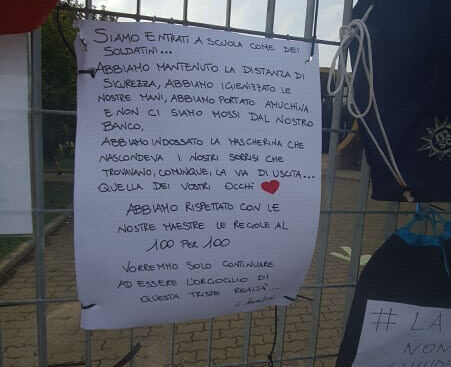 SIAMO ENTRATI A SCUOLA COME DEI
SOLDATINI...
ABBIAMO MANTENUTO LA DISTANZA DI
SICUREZZA, ABBIAMO IGIENIZZATO LE
NOSTRE MANI, ABBIAMO PORTATO AMUCHINA
E NON CI SIAMO MOSSI DAL NOSTRO
BANCO,
ABBIAMO INDOSSATO LA MASCHERINA CHE
NASCONDEVA I NOSTRI SORRISI CHE
TROVAVANO, COMUNQUE, LA VIA DI USCITA...
QUELLA DEI VOSTRI OCCHI ❤
ABBIAMO RISPETTATO CON LE
NOSTRE MAESTRE LE REGOLE AL
100 PER 100
VORREMMO SOLO CONTINUARE
AD ESSERE L'ORGOGLIO DI
QUESTA TRISTE REALTÀ...
i bambini
MSC
# LA
NON